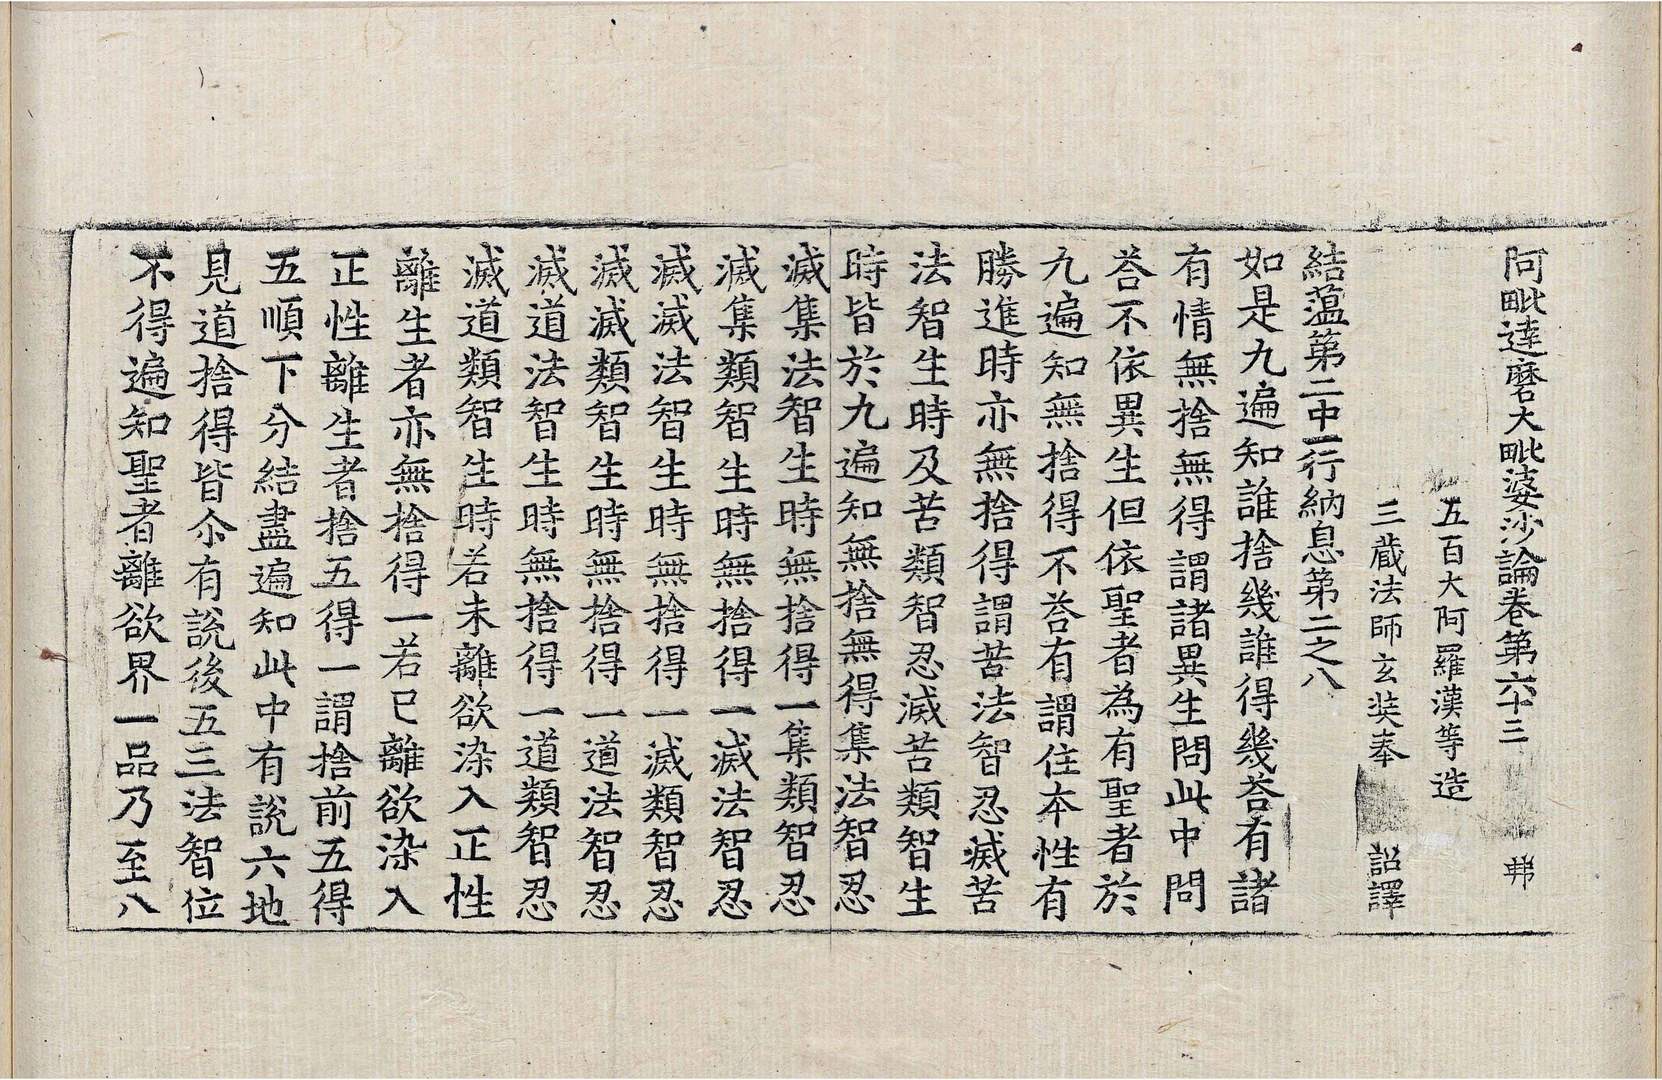 阿毗達磨大毗婆沙論卷第六十三 弗
五百大阿羅漢等造
三藏法師玄奘奉 詔譯
結薀第二中一行納息第二之八
如是九遍知誰捨幾誰得幾荅有諸
有情無捨無得謂諸異生問此中問
荅不依異生但依聖者為有聖者於
九遍知無捨得不荅有謂住本性有
勝進時亦無捨得謂苦法智忍滅苦
法智生時及苦類智忍滅苦類智生
時皆於九遍知無捨無得集法智忍
滅集法智生時無捨得一集類智忍
滅集類智生時無捨得一滅法智忍
滅滅法智生時無捨得一滅類智忍
滅滅類智生時無捨得一道法智忍
滅道法智生時無捨得一道類智忍
滅道類智生時若未離欲染入正性
離生者亦無捨得一若已離欲染入
正性離生者捨五得一謂捨前五得
五順下分結盡遍知此中有說六地
見道捨得皆尒有說後五三法智位
不得遍知聖者離欲界一品乃至八